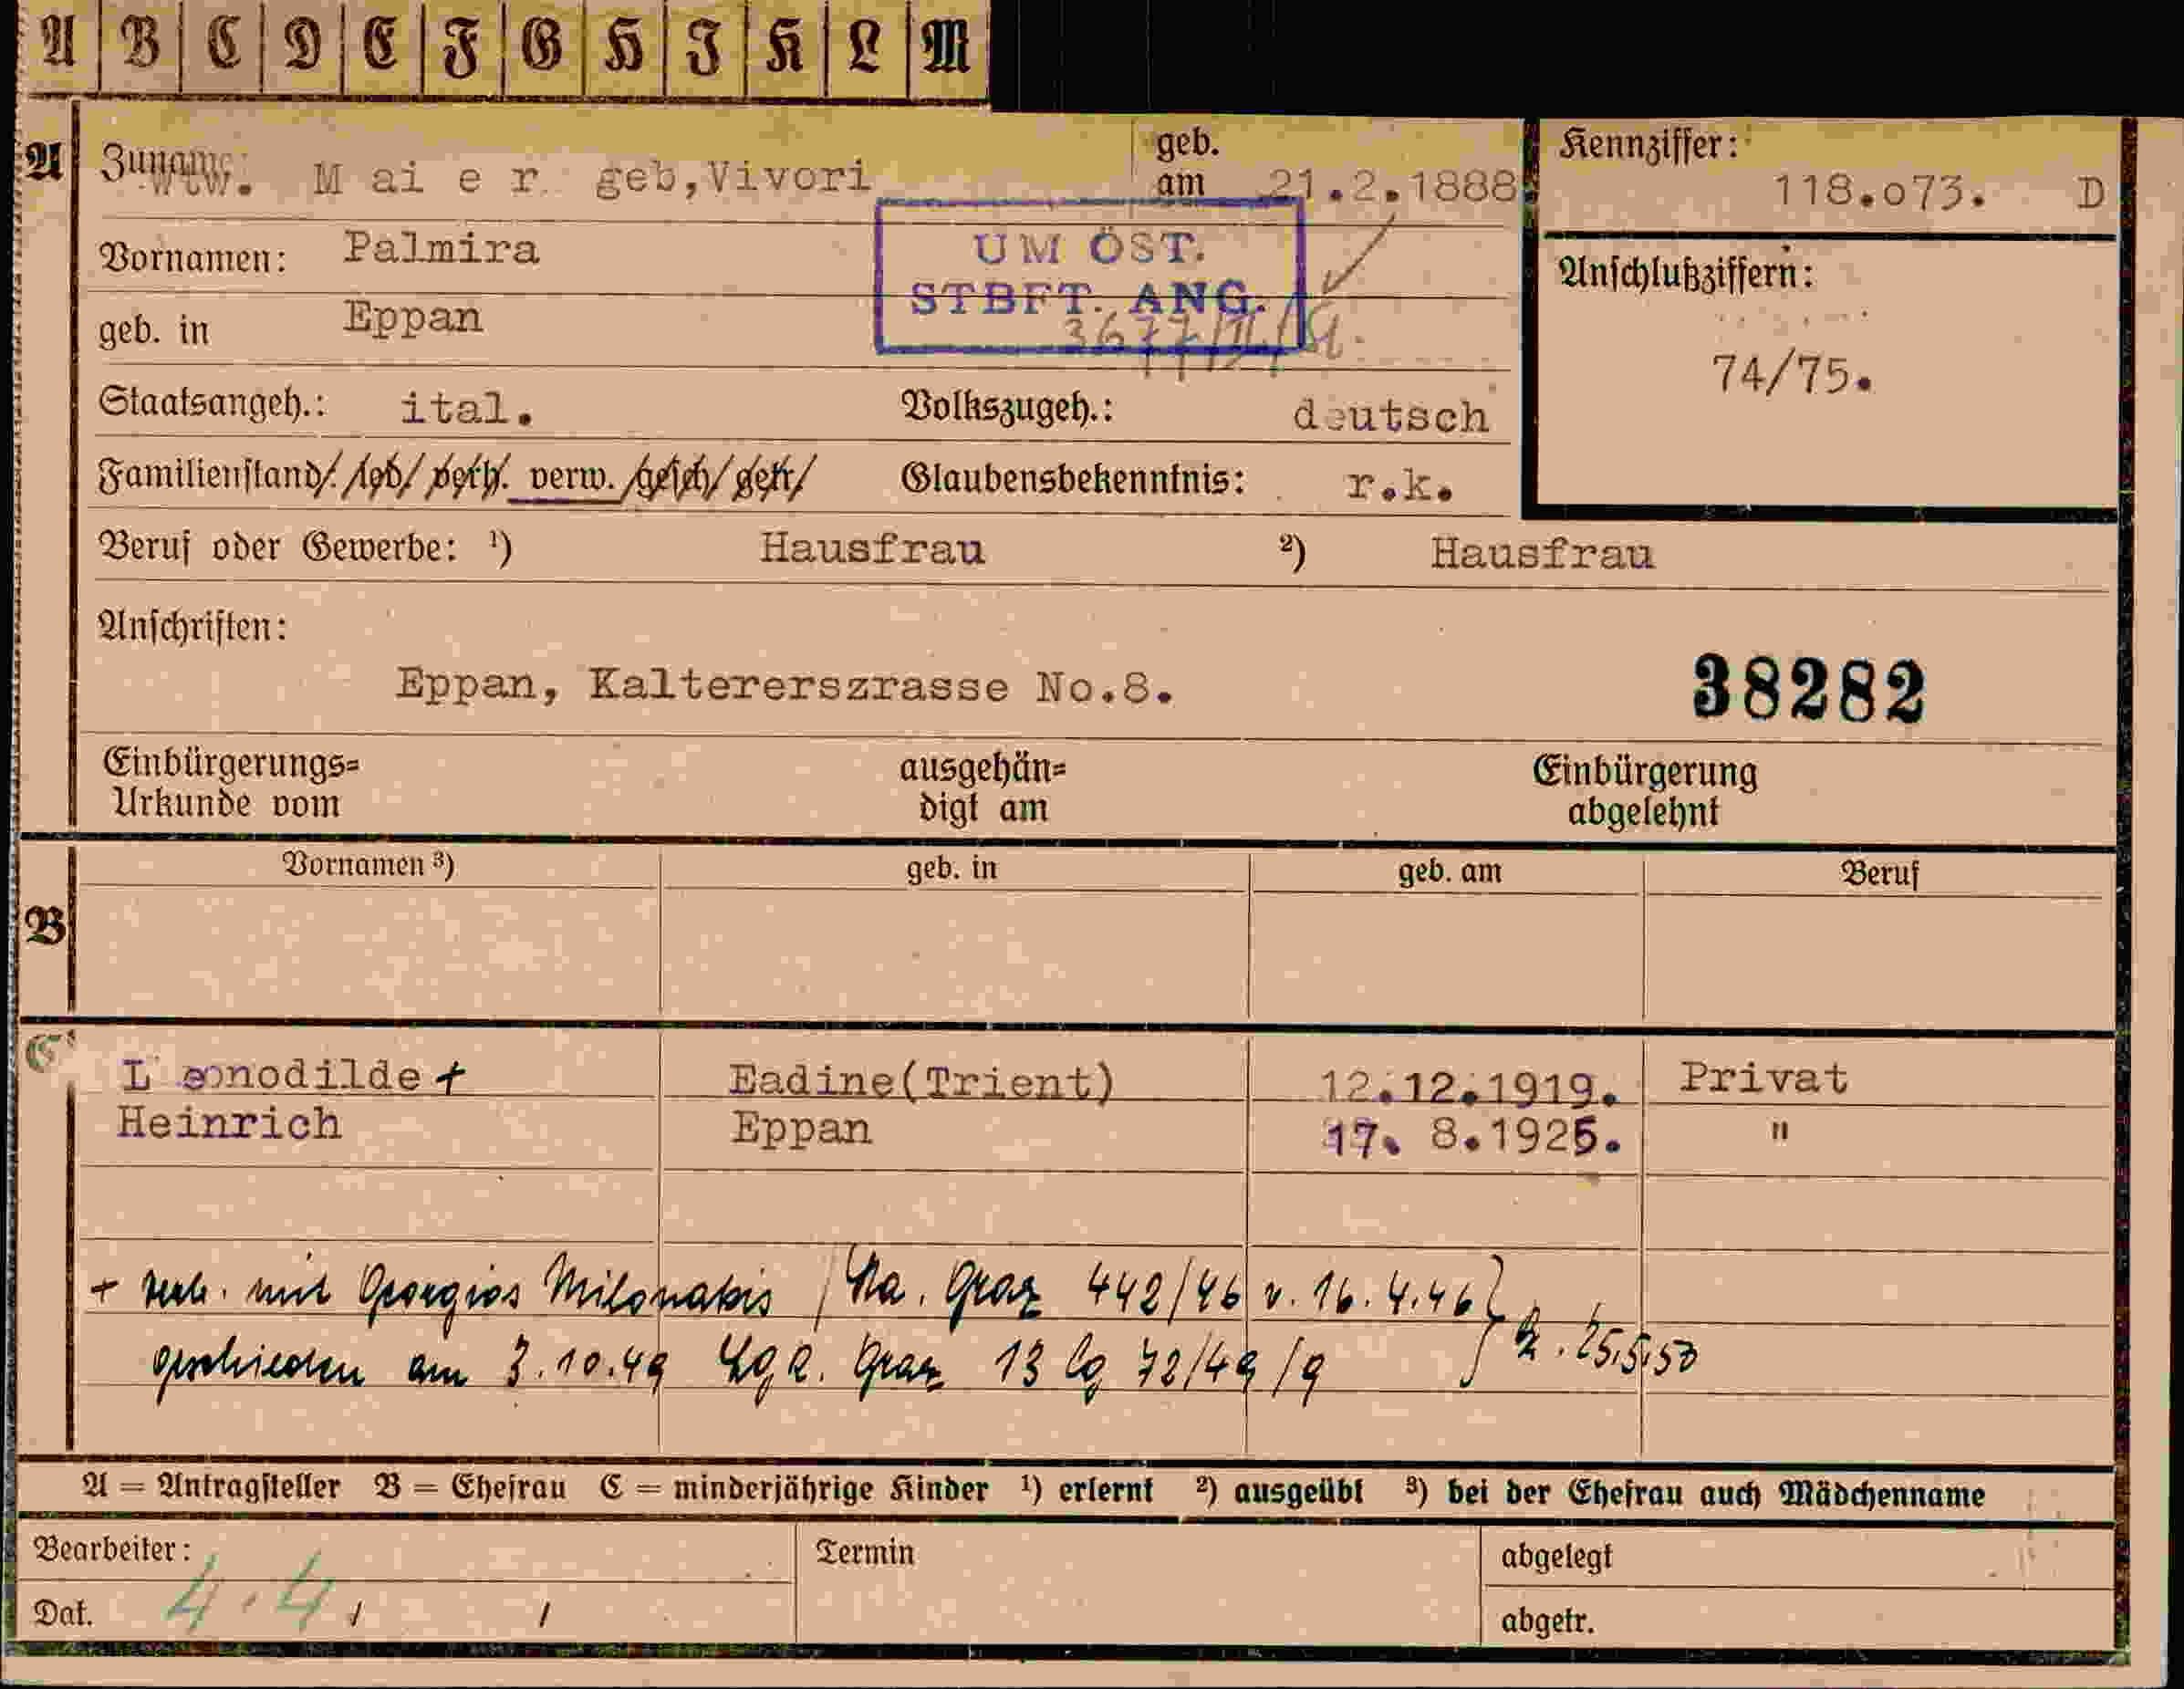 A B C D E F G H I K L M
A Zuname: wtw. M ai e r geb,Vivori geb. am 21.2.1888. Kennziffer: 118.o73. D
Vornamen: Palmira
UM ÖST.
STBFT. ANG.
3677/II/
Anschlußziffern:
74/75.
geb. in Eppan
Staatsangeh.: ital. Volkszugeh.: deutsch
Familienstand: led. verh. verw. gesch. getr. Glaubensbekenntnis: r.k.
Beruf oder Gewerbe: ¹) Hausfrau ²) Hausfrau
Anschriften:
Eppan, Kaltererszrasse No.8.
38282
Einbürgerungs= Urkunde vom
ausgehän= digt am
Einbürgerung abgelehnt
Vornamen ³) geb. in geb. am Beruf
B
C
L eonodilde + Eadine(Trient) 12.12.1919. Privat
Heinrich Eppan 17. 8.1925. "
+ verh. mit Georgios Milonakis / Sta. Graz 442/46 v. 16.4.46
geschieden am 3.10.49 LgR. Graz 13 Cg 72/49/9
25.5.50
A = Antragsteller B = Ehefrau C = minderjährige Kinder ¹) erlernt ²) ausgeübt ³) bei der Ehefrau auch Mädchenname
Bearbeiter: Termin abgelegt
Dat. 4.4 / / abgetr.